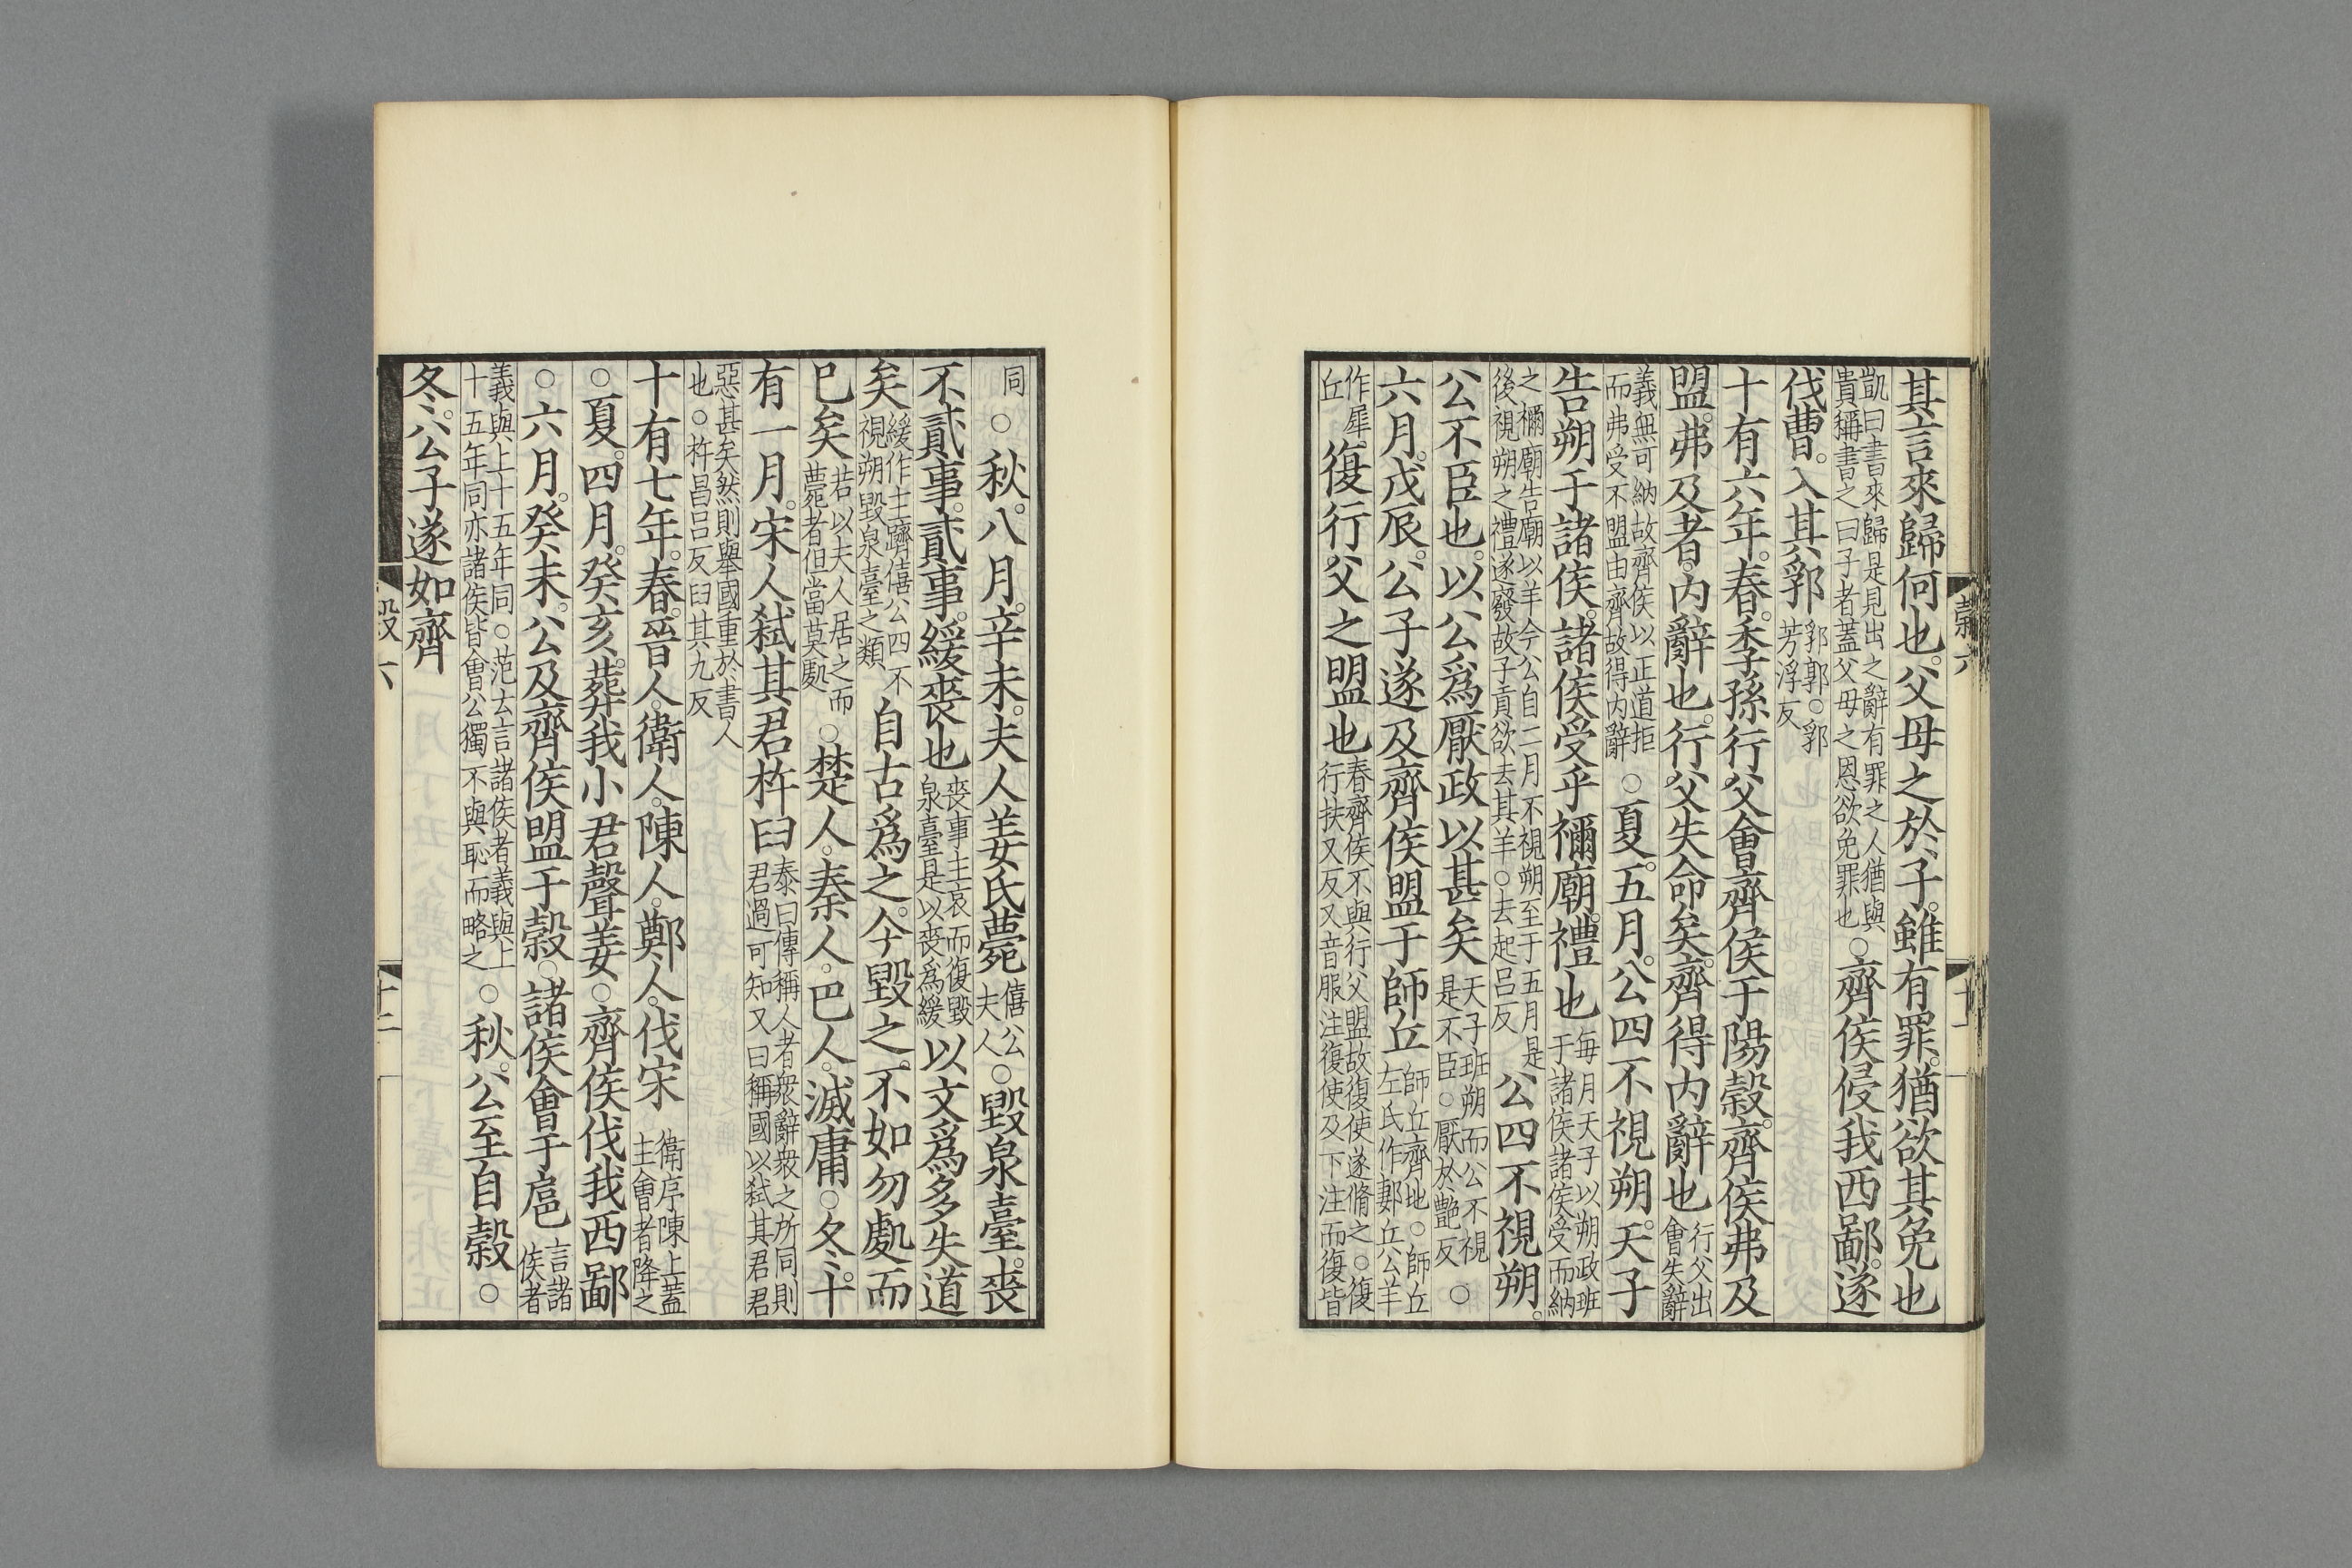 其言來歸何也父母之於子雖有罪猶欲其免也
凱曰書來歸是見出之辭有罪之人猶與
貴稱書之曰子者蓋父母之恩欲免罪也
○齊侯侵我西鄙遂
伐曹入其郛
郛郭○郛
芳浮反
十有六年春季孫行父會齊侯于陽穀齊侯弗及
盟弗及者内辭也行父失命矣齊得内辭也
行父出
會失辭
義無可納故齊侯以正道拒
而弗受不盟由齊故得内辭
○夏五月公四不視朔天子
告朔于諸侯諸侯受乎禰廟禮也
每月天子以朔政班
于諸侯諸侯受而納
之禰廟告廟以羊今公自二月不視朔至于五月是
後視朔之禮遂廢故子貢欲去其羊○去起呂反
公四不視朔
公不臣也以公爲厭政以甚矣
天子班朔而公不視
是不臣○厭於艷反
○
六月戊辰公子遂及齊侯盟于師丘
師丘齊地○師丘
左氏作郪丘公羊
作犀
丘
復行父之盟也
春齊侯不與行父盟故復使遂脩之○復
行扶又反又音服注復使及下注而復皆
穀六
十一
同
○秋八月辛未夫人姜氏薨
僖公
夫人
○毀泉臺喪
不貳事貳事緩喪也
喪事主哀而復毀
泉臺是以喪爲緩
以文爲多失道
矣
緩作主躋僖公四不
視朔毀泉臺之類
自古爲之今毀之不如勿處而
已矣
若以夫人居之而
薨者但當莫處
○楚人秦人巴人滅庸○冬十
有一月宋人弑其君杵臼
泰曰傳稱人者衆辭衆之所同則
君過可知又曰稱國以弑其君君
惡甚矣然則舉國重於書人
也○杵昌呂反臼其九反
十有七年春晉人衛人陳人鄭人伐宋
衛序陳上蓋
主會者降之
○夏四月癸亥葬我小君聲姜○齊侯伐我西鄙
○六月癸未公及齊侯盟于穀○諸侯會于扈
言諸
侯者
義與上十五年同○范云言諸侯者義與上
十五年同亦諸侯皆會公獨不與恥而略之
○秋公至自穀○
冬公子遂如齊
穀六
十二